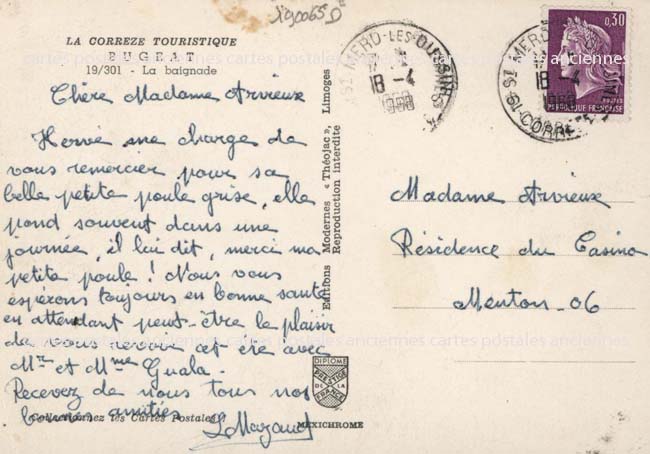 x90065D
LA CORREZE TOURISTIQUE
BUGEAT
19/301 - La baignade
Chère Madame Arvieux
Hervé me charge de
vous remercier pour sa
belle petite poule grise, elle
pond souvent dans une
journée, il lui dit, merci ma
petite poule ! Nous vous
espérons toujours en bonne santé
en attendant peut-être le plaisir
de vous revoir cet été avec
Mr et Mme Guala.
Recevez de nous tous nos
bonnes amitiés
LMazaud
Collectionnez les Cartes Postales
Editions Modernes « Théojac », Limoges
Reproduction interdite
DIPLOME
PRESTIGE
DE LA
FRANCE
MEXICHROME
ST MERD-LES-OUSSINES
18-4
ST MERD
18-4
CORREZE
0,30
POSTES
REPUBLIQUE FRANÇAISE
Madame Arvieux
Résidence du Casino
Menton-06
cartes postales anciennes cartes postales anciennes cartes postales anciennes
cartes postales anciennes cartes postales anciennes cartes postales anciennes